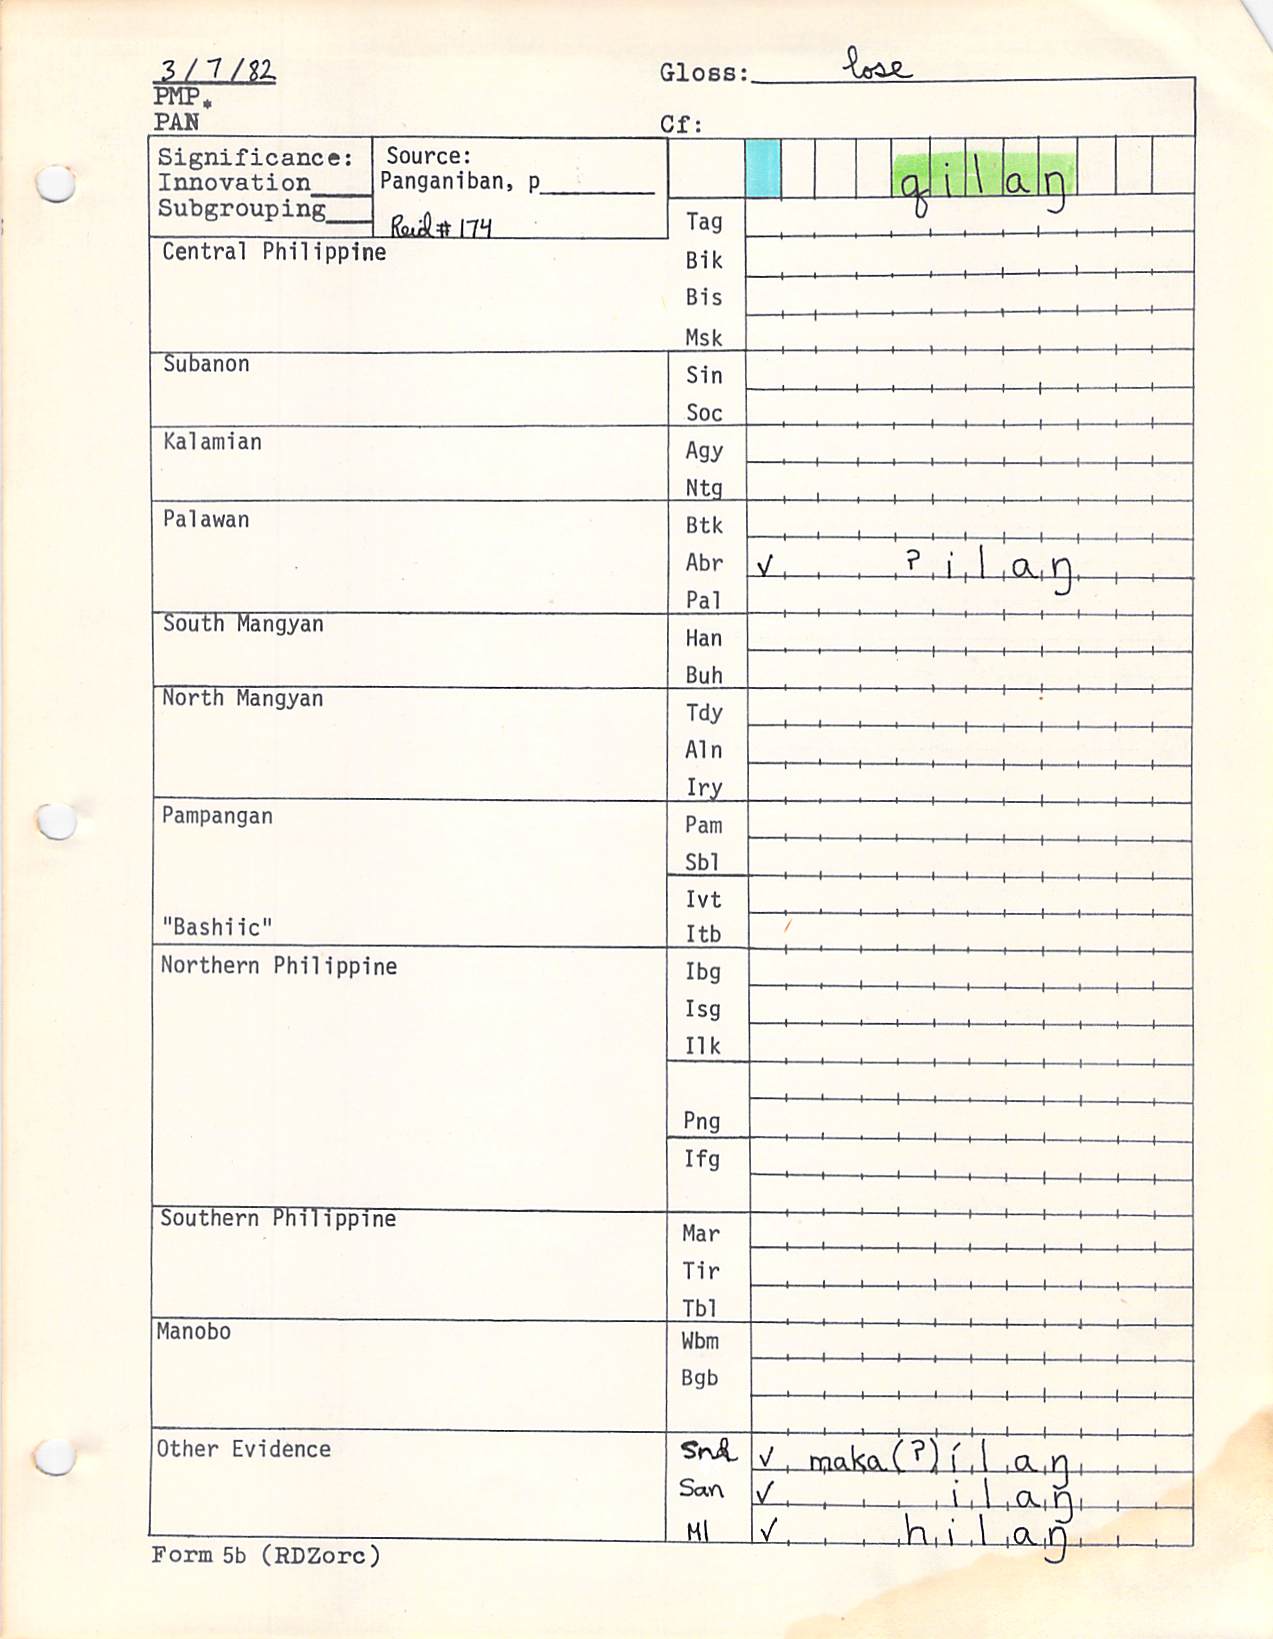 3/7/82
Gloss: lose
PMP*
PAN
Cf:
Significance:
Innovation
Subgrouping
Source:
Panganiban, p
Reid # 174
qilaŋ
Tag
Central Philippine
Bik
Bis
Msk
Subanon
Sin
Soc
Kalamian
Agy
Ntg
Palawan
Btk
Abr ✓ ʔilaŋ
Pal
South Mangyan
Han
Buh
North Mangyan
Tdy
Aln
Iry
Pampangan
Pam
Sbl
Ivt
"Bashiic"
Itb
Northern Philippine
Ibg
Isg
Ilk
Png
Ifg
Southern Philippine
Mar
Tir
Tbl
Manobo
Wbm
Bgb
Other Evidence
✓ maka(ʔ)ílaŋ
San ✓ ilaŋ
Ml ✓ hilaŋ
Form 5b (RDZorc)